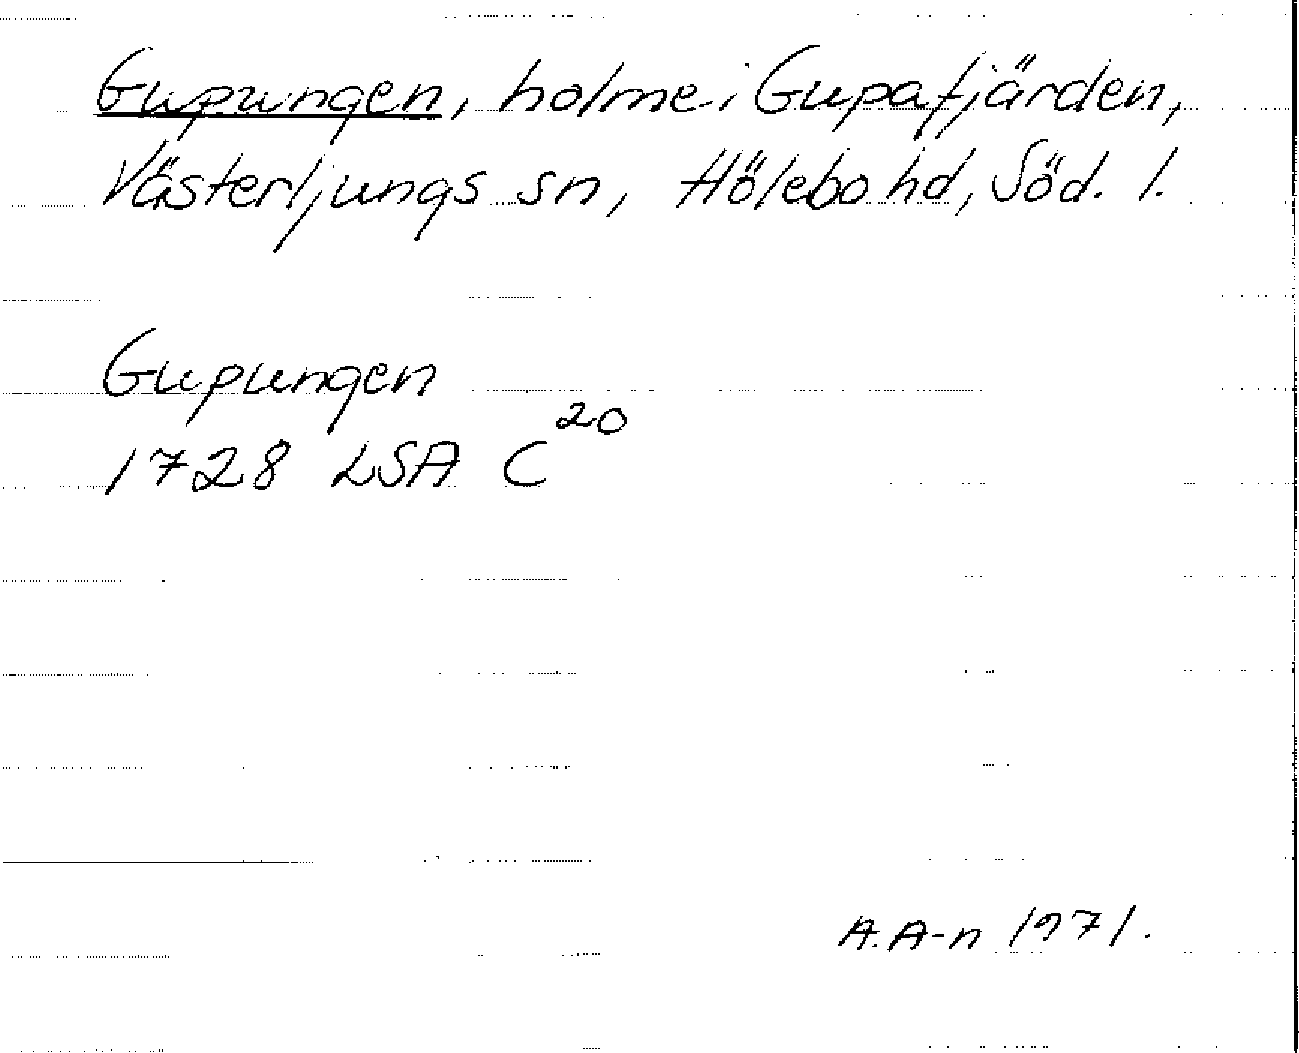 Gupungen, holme i Gupafjärden,
Västerljungs sn, Hölebo hd, Söd. l.
Gupungen
1728 LSA C²⁰
A. A-n 1971.